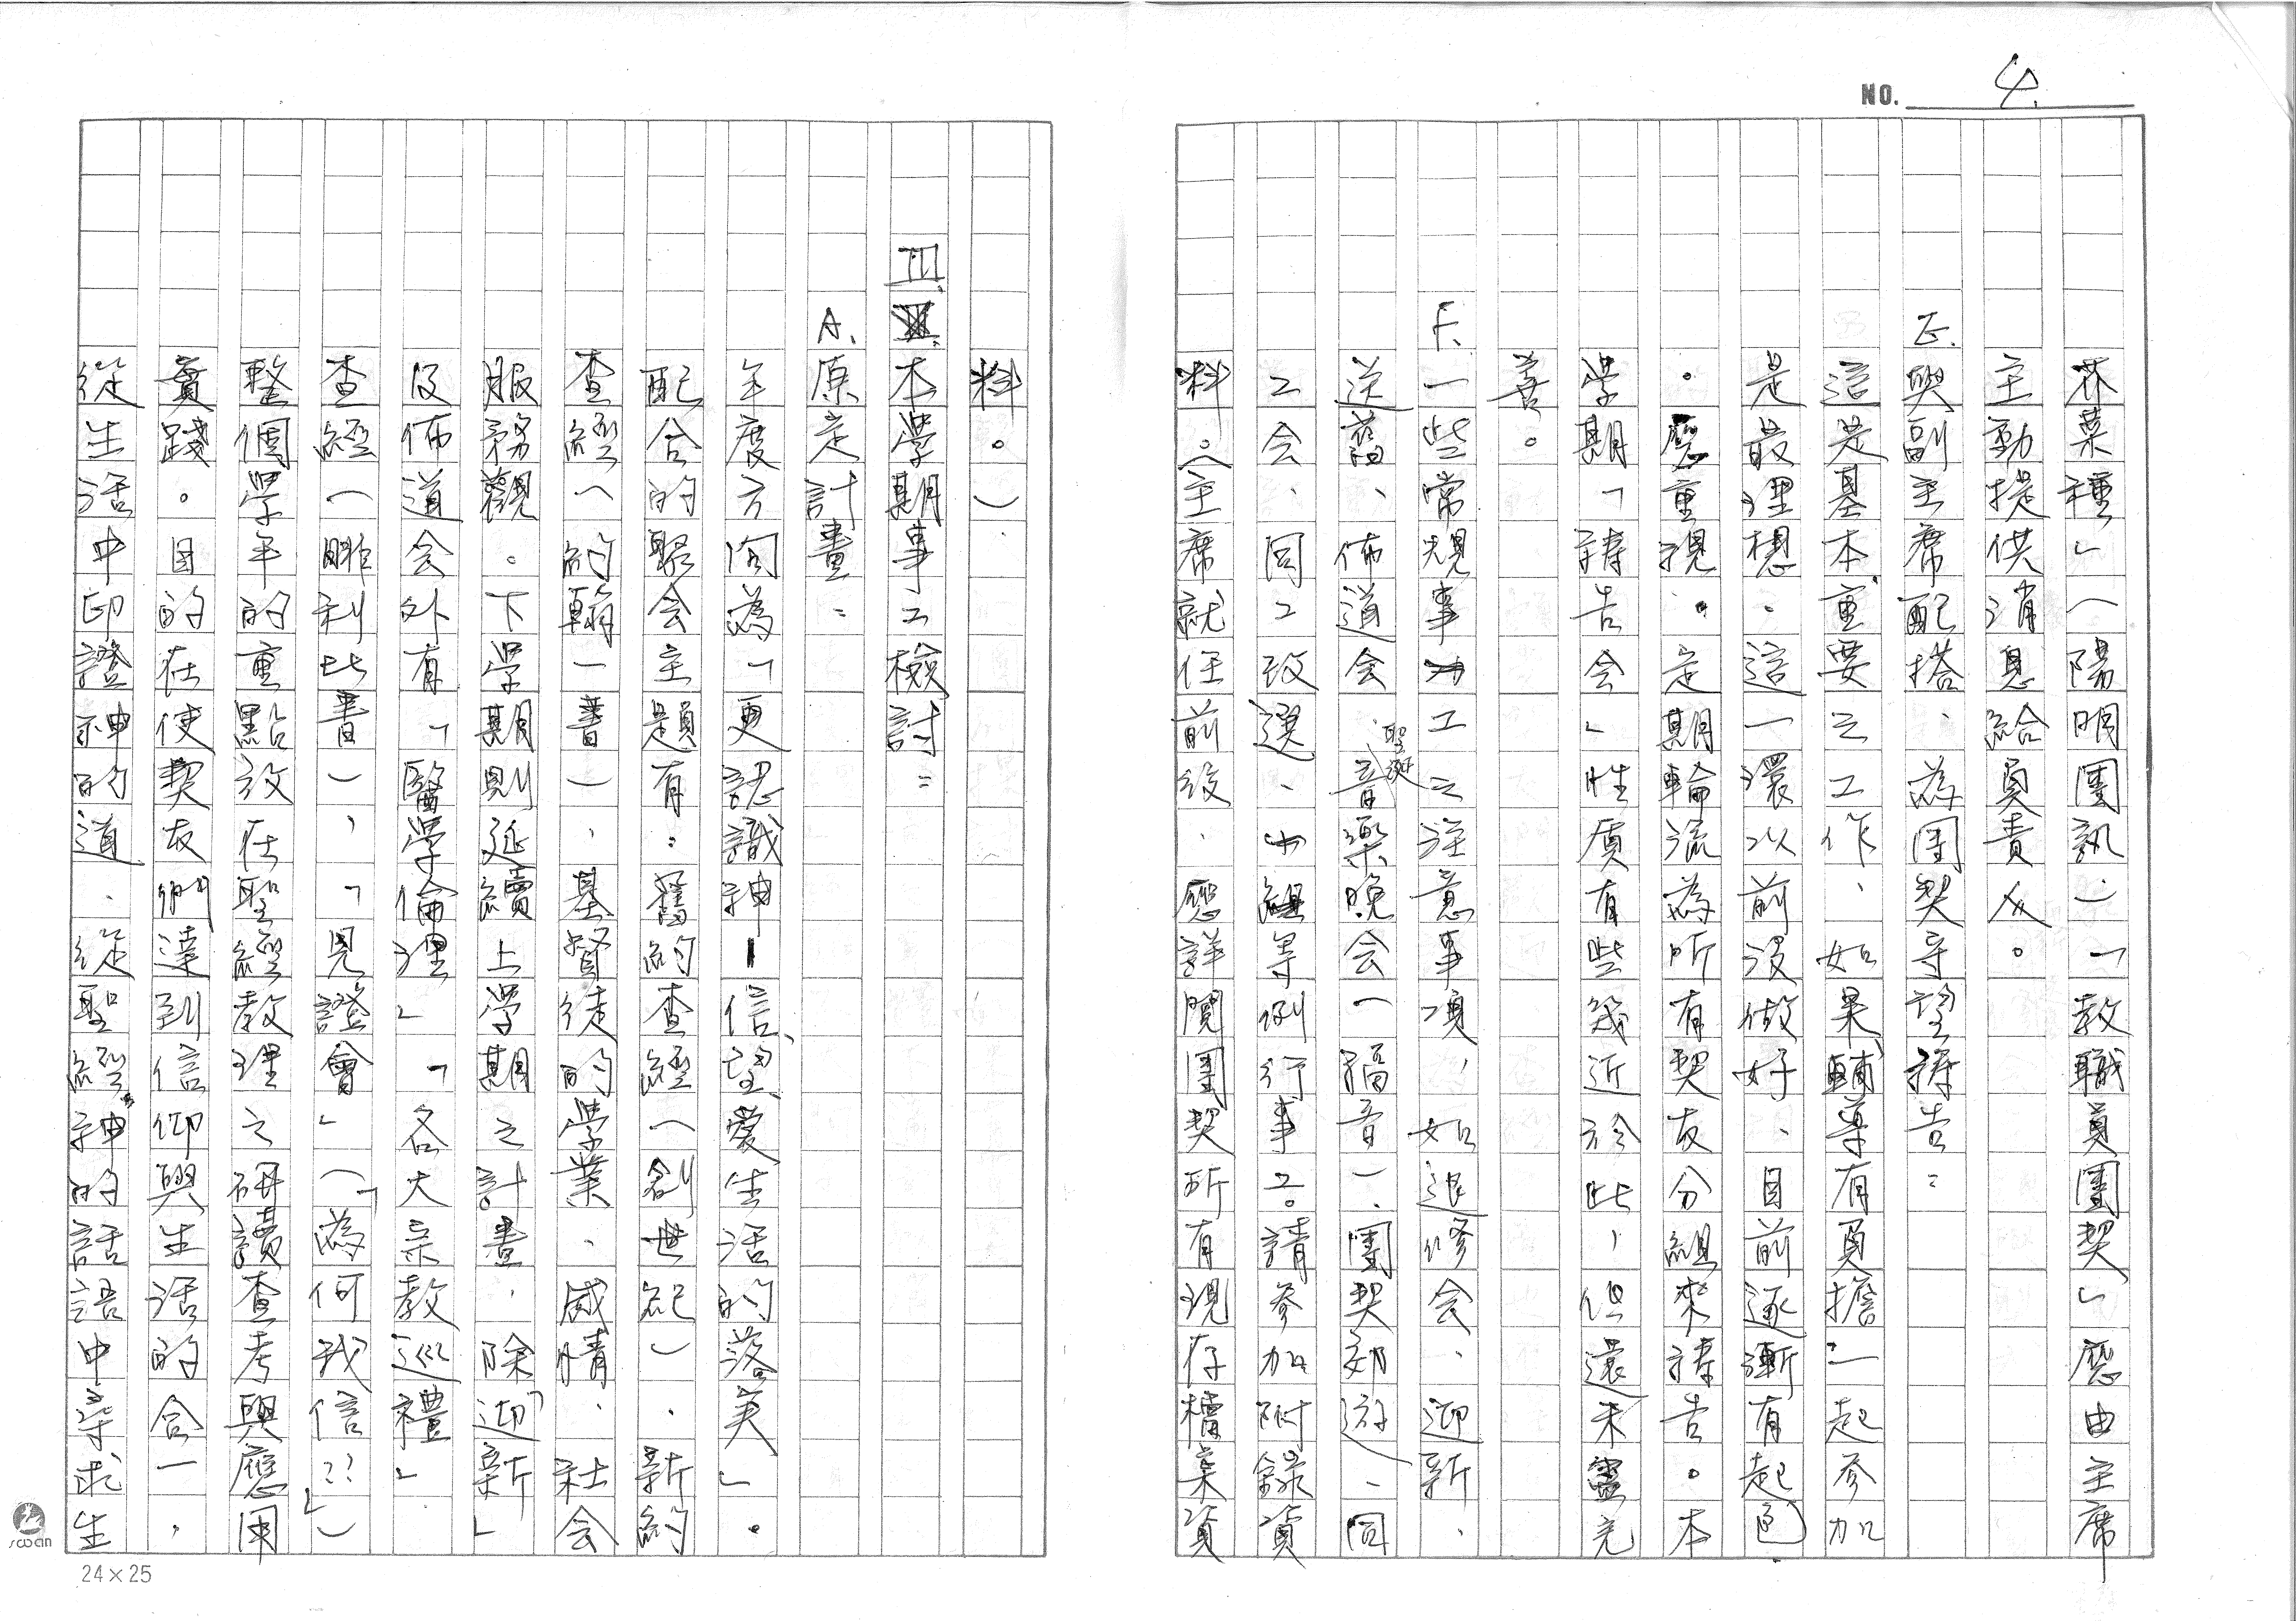 NO. 4.
芥菜種」(陽明團訊)「教職員團契」應由主席
主動提供消息給負責人。
E.與副主席配搭、為團契守望禱告:
這是基本重要之工作、如果輔導有負擔一起參加
是最理想、這一環以前沒做好、目前逐漸有起色
。應重視。定期輪流為所有契友分組來禱告。本
學期「禱告會」性質有些幾近於此,但還未盡完
善。
F.一些常規事工之注意事項,如退修會、迎新、
送舊、佈道會、聖誕音樂晚會(福音)、團契郊遊、同
工会、同工改選、小組等例行事工。請參加附錄資
料。(主席就任前後、應詳閱團契所有現存檔案資
料。)
III.本學期事工檢討:
A.原定計畫:
年度方向為「更認識神—信、望、愛生活的落實」。
配合的聚会主題有:舊約查經(創世紀)、新約
查經(約翰一書)、基督徒的學業、感情、社会
服務觀。下學期則延續上學期之計畫、除「迎新」
及佈道会外有「醫學倫理」「各大宗教巡禮」
查經(腓利比書)、「見證會」(「為何我信??」)
整個學年的重點放在聖經教理之研讀查考與應用
實踐。目的在使契友們達到信仰與生活的合一,
從生活中印證神的道、從聖經神的話語中尋求生
swan
24×25